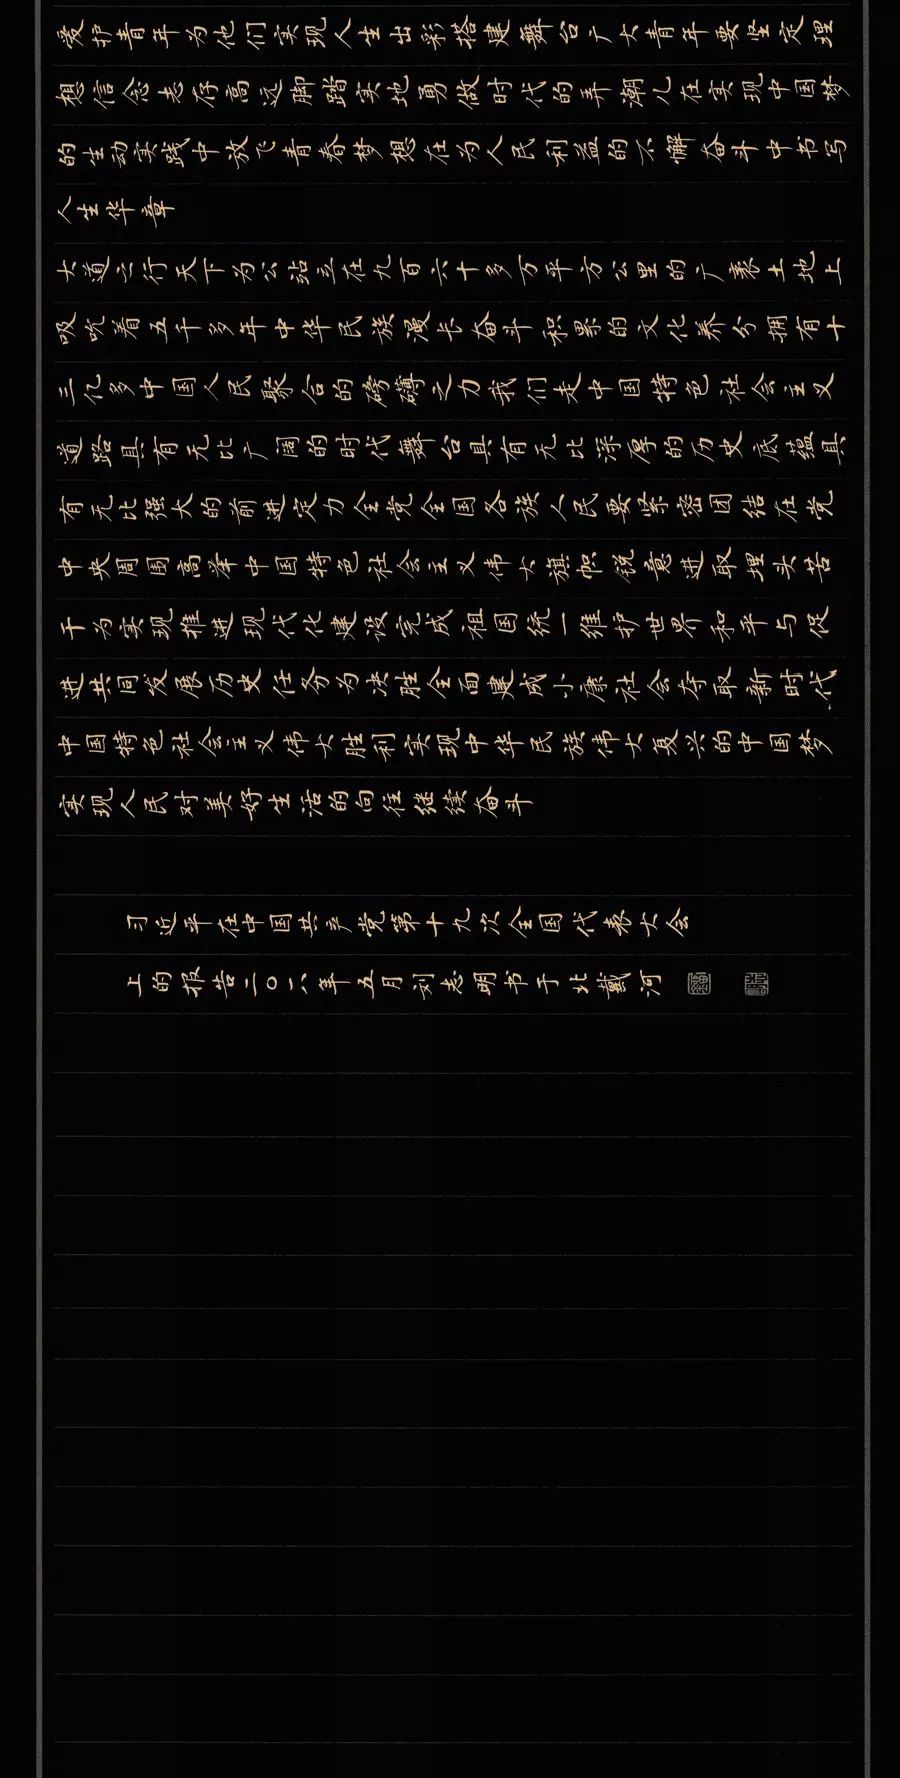 爱护青年为他们实现人生出彩搭建舞台广大青年要坚定理
想信念志存高远脚踏实地勇做时代的弄潮儿在实现中国梦
的生动实践中放飞青春梦想在为人民利益的不懈奋斗中书写
人生华章
大道之行天下为公站立在九百六十多万平方公里的广袤土地上
吸吮着五千多年中华民族漫长奋斗积累的文化养分拥有十
三亿多中国人民聚合的磅礴之力我们走中国特色社会主义
道路具有无比广阔的时代舞台具有无比深厚的历史底蕴具
有无比强大的前进定力全党全国各族人民要紧密团结在党
中央周围高举中国特色社会主义伟大旗帜锐意进取埋头苦
干为实现推进现代化建设完成祖国统一维护世界和平与促
进共同发展历史任务为决胜全面建成小康社会夺取新时代
中国特色社会主义伟大胜利实现中华民族伟大复兴的中国梦
实现人民对美好生活的向往继续奋斗
习近平在中国共产党第十九次全国代表大会
上的报告二〇一八年五月刘志明书于北戴河